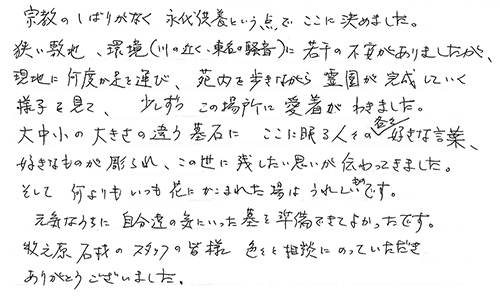 宗教のしばりがなく 永代供養という点で ここに決めました。
狭い敷地、環境(川の近く、東名の騒音)に 若干の不安がありましたが、
現地に何度か足を運び、苑内を歩きながら 霊園が完成していく
様子を見て、少しずつ この場所に 愛着が わきました。
大中小の大きさの違う墓石に ここに眠る人々の 好きな言葉、
好きなものが彫られ、この世に残したい思いが伝わってきました。
そして 何よりも いつも 花にかこまれた場はうれしいです。
元気なうちに 自分達の気にいった墓を準備できてよかったです。
牧之原石材のスタッフの皆様 色々と相談にのっていただき
ありがとうございました。